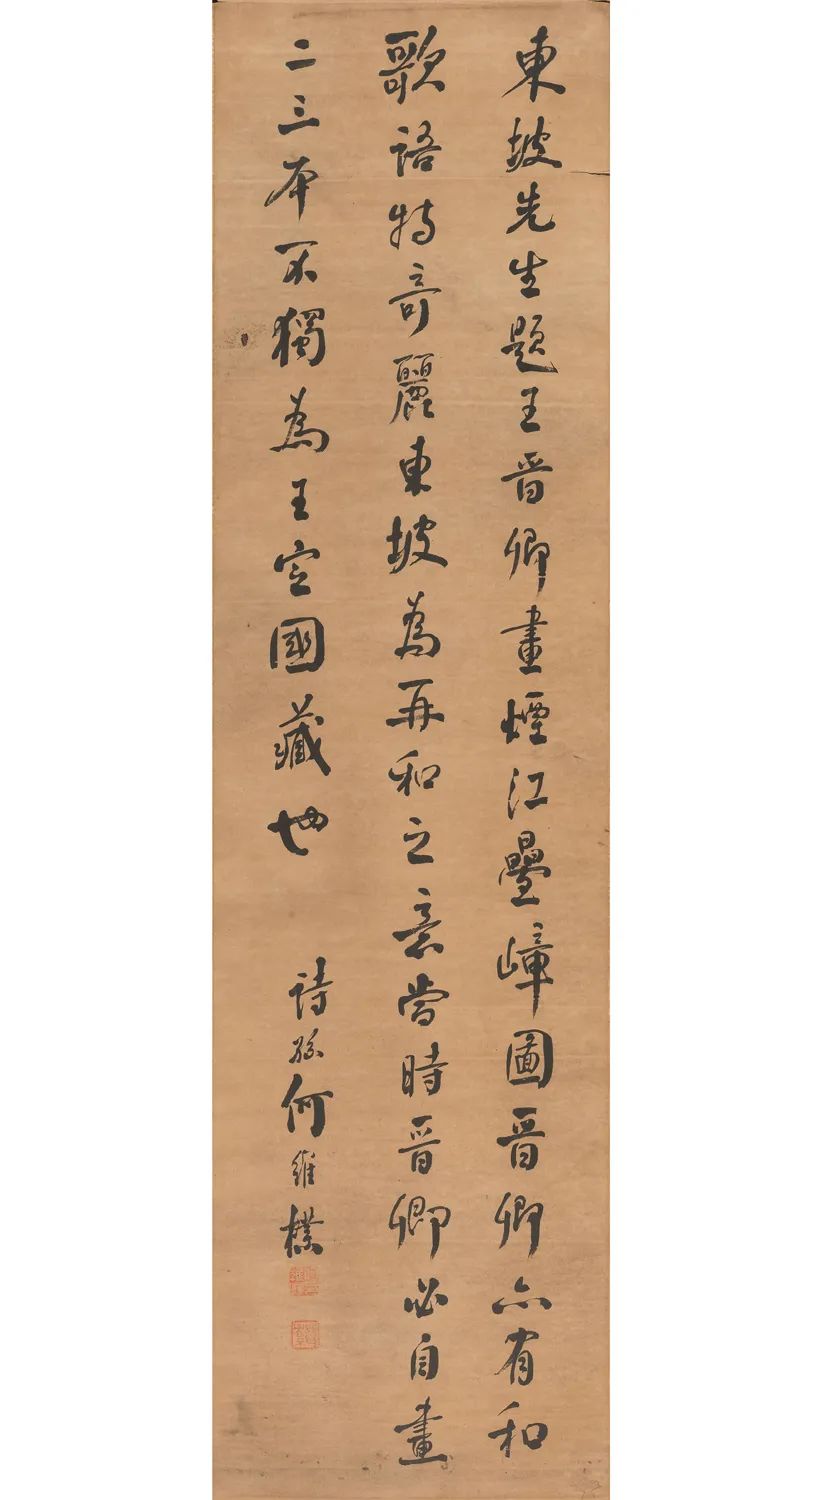 東坡先生題王晉卿畫煙江疊嶂圖晉卿亦有和
歌語特奇麗東坡為再和之意當時晉卿必自畫
二三本不獨為王定國藏也
詩孫何維樸